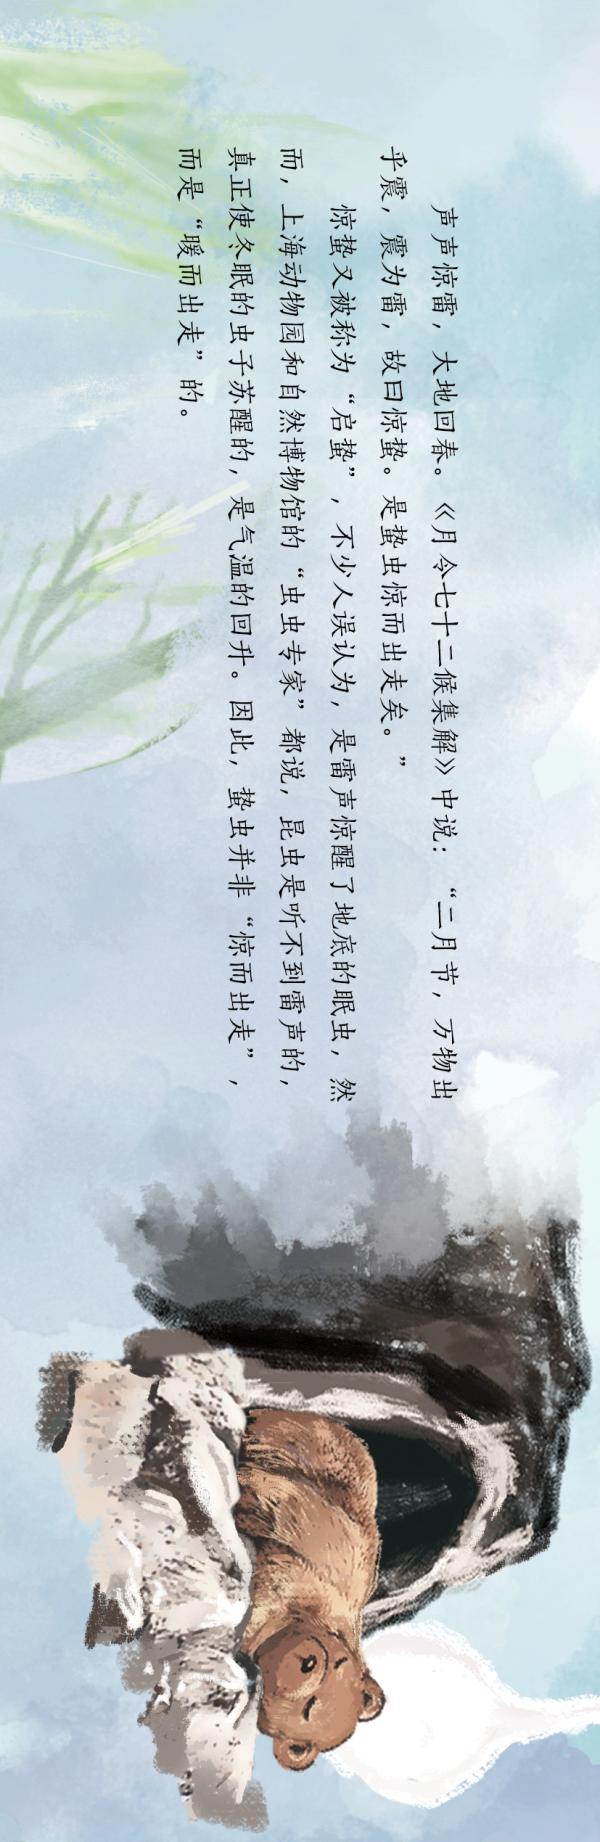 声声惊雷，大地回春。《月令七十二候集解》中说：“二月节，万物出
乎震，震为雷，故曰惊蛰。是蛰虫惊而出走矣。”
惊蛰又被称为“启蛰”，不少人误认为，是雷声惊醒了地底的眠虫，然
而，上海动物园和自然博物馆的“虫虫专家”都说，昆虫是听不到雷声的，
真正使冬眠的虫子苏醒的，是气温的回升。因此，蛰虫并非“惊而出走”，
而是“暖而出走”的。